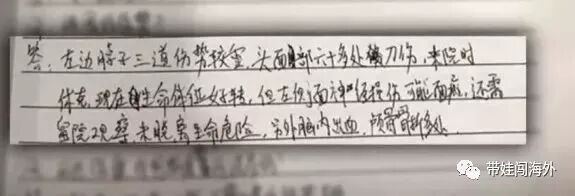 答：左边脖子三道伤势较重，头面部六十多处刀伤，来院时
休克，现在生命体征好转，但左侧面神经损伤可能面瘫，还需
留院观察，未脱离生命危险，另外脑内出血，颅骨骨折多处
带娃闯海外